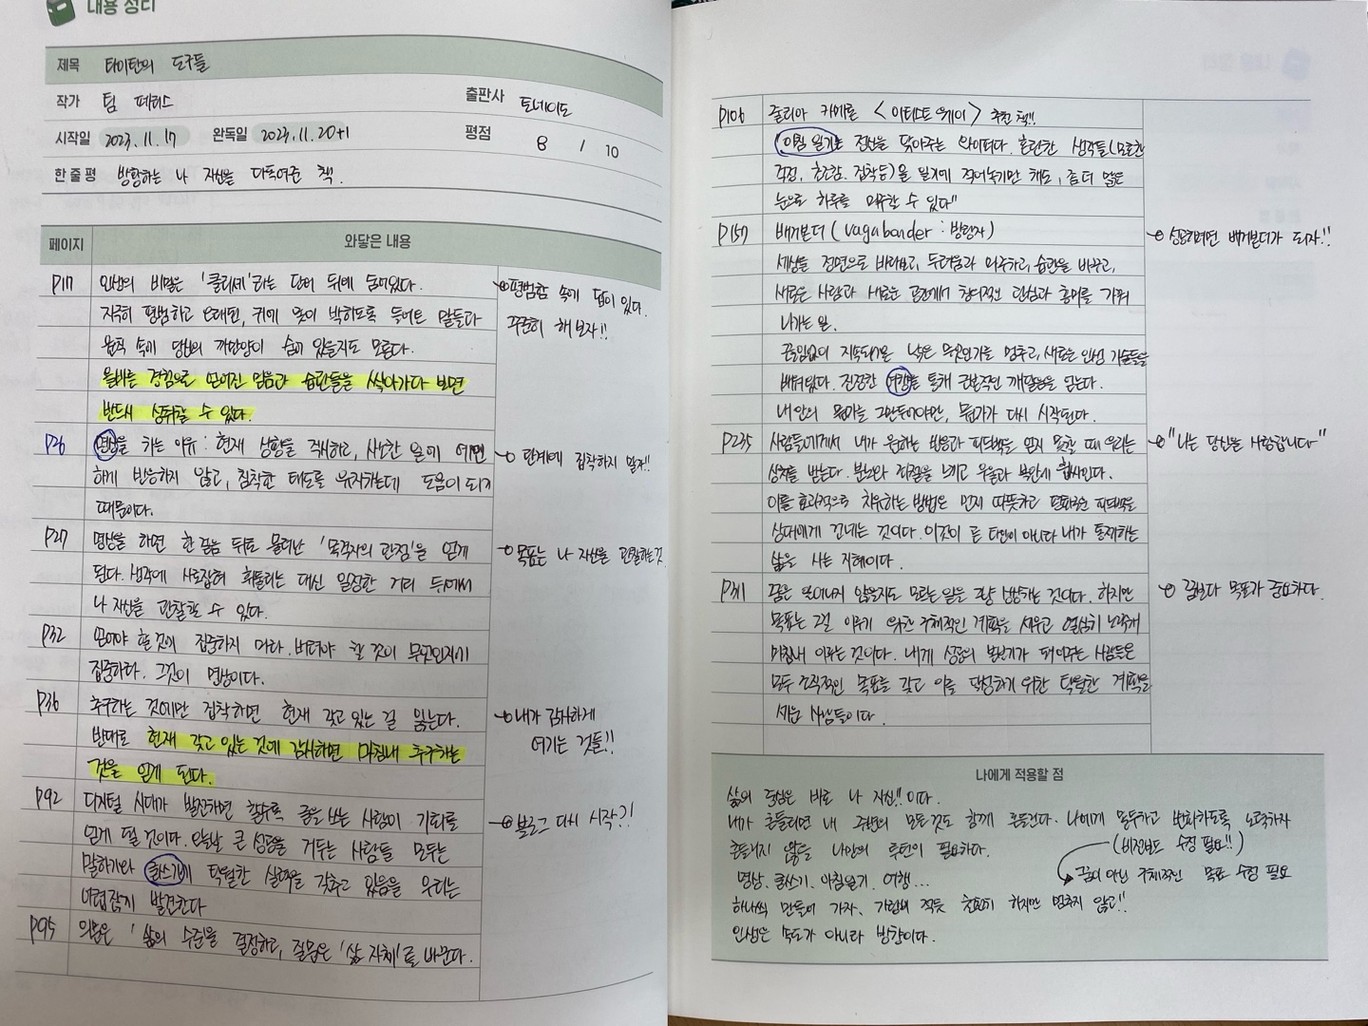 내용 정리
제목 타이탄의 도구들
작가 팀 페리스
출판사 토네이도
시작일 2023.11.17 완독일 2023.11.20+1
평점 8 / 10
한 줄 평 방황하는 나 자신을 다독여준 책.
페이지 와닿은 내용
P17 인생의 비밀은 '클리셰'라는 단어 뒤에 숨어있다.
지극히 평범하고 오래된, 귀에 못이 박히도록 들어온 말들과
원칙 속에 당신의 깨달음이 숨어 있을지도 모른다.
올바른 경험으로 얻어진 믿음과 습관들을 쌓아가다 보면
반드시 성취할 수 있다.
→ 평범함 속에 답이 있다.
꾸준히 해보자!!
P26 명상을 하는 이유: 현재 상황을 직시하고, 사소한 일에 예민
하게 반응하지 않고, 침착한 태도를 유지하는데 도움이 되기
때문이다.
→ 단계에 집착하지 말자!!
P27 명상을 하면 한 걸음 뒤로 물러난 '목격자의 관점'을 얻게
된다. 생각에 사로잡혀 휘둘리는 대신 일정한 거리 두에서
나 자신을 관찰할 수 있다.
→ 목표는 나 자신을 관찰하는것
P32 얻어야 할 것에 집중하지 마라. 버려야 할 것이 무엇인지에
집중하라. 그것이 명상이다.
P36 추구하는 것에만 집착하면 현재 갖고 있는 걸 잃는다.
반대로 현재 갖고 있는 것에 감사하면 마침내 추구하는
것을 얻게 된다.
→ 내가 감사하게
여기는 것들!!
P92 디지털 시대가 발전하면 할수록 글을 쓰는 사람이 기회를
얻게 될 것이다. 오늘날 큰 성공을 거두는 사람들 모두는
말하기와 글쓰기에 탁월한 실력을 갖추고 있음을 우리는
어렵잖게 발견한다
→ 블로그 다시 시작?!
P95 의문은 '삶의 수준'을 결정하고, 질문은 '삶 자체'를 바꾼다.
P106 줄리아 카메론 <아티스트 웨이> 추천 책!!
"아침 일기는 정신을 닦아주는 와이퍼다. 혼란한 생각들(모호한
걱정, 초조함, 집착등)을 일기에 적어놓기만 해도, 좀 더 맑은
눈으로 하루를 마주할 수 있다"
P157 베가본더 (vagabonder : 방랑자)
세상을 정면으로 바라보고, 두려움과 마주하고, 습관을 바꾸고,
새로운 사람과 새로운 공간에서 창의적인 관심과 흥미를 키워
나가는 일.
끊임없이 지속되거온 낡은 무언가를 멈추고, 새로운 인생 기술들을
배워간다. 진정한 여행을 통해 근본적인 깨달음을 얻는다.
내 안의 뭔가를 그만두어야만, 뭔가가 다시 시작된다.
→ 성공하려면 베가본더가 되자!!
P235 사람들에게서 내가 원하는 반응과 피드백을 얻지 못할 때 우리는
상처를 받는다. 분노와 좌절을 느끼고 우울과 불안에 휩싸인다.
이를 효과적으로 치유하는 방법은 먼저 따뜻하고 평화로운 피드백을
상대에게 건네는 것이다. 이것이 곧 타인이 아니라 내가 통제하는
삶을 사는 지혜이다.
→ "나는 당신을 사랑합니다"
P311 꿈은 일어나지 않을지도 모르는 일을 그냥 상상하는 것이다. 하지만
목표는 그걸 이루기 위한 구체적인 계획을 세우고 열심히 노력해
마침내 이루는 것이다. 내게 성공의 본보기가 되어주는 사람들은
모두 조직적인 목표를 갖고 이를 달성하기 위한 탁월한 계획을
세운 사람들이다.
→ 꿈보다 목표가 중요하다.
나에게 적용할 점
삶의 중심은 바로 나 자신!! 이다.
내가 흔들리면 내 주변의 모든것도 함께 흔들린다. 나에게 몰두하고 변화하도록 노력하자
흔들리지 않을 나만의 루틴이 필요하다. (비전보드 수정 필요!!)
명상. 글쓰기. 아침일기. 여행... → 꿈이 아닌 구체적인 목표 수정 필요
하나씩 만들어 가자. 가랑비 적듯 천천히 하지만 멈추지 않고!!
인생은 속도가 아니라 방향이다.